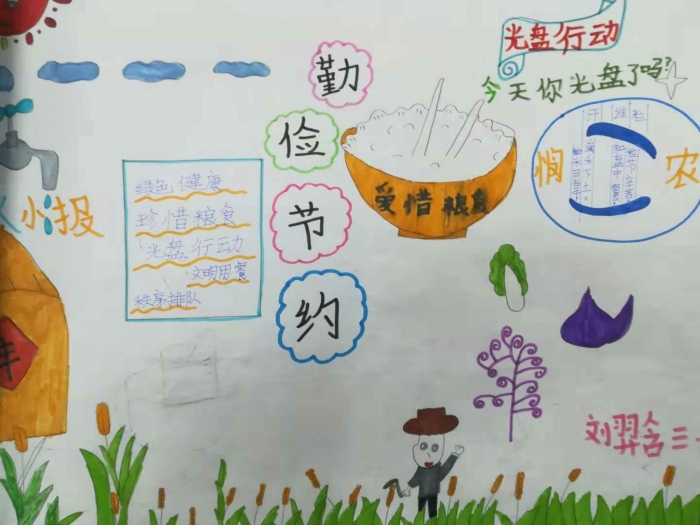 光盘行动
今天你光盘了吗?
勤
俭
节
约
爱惜粮食
悯
农
小报
绿色健康
珍惜粮食
光盘行动
文明用餐
秩序排队